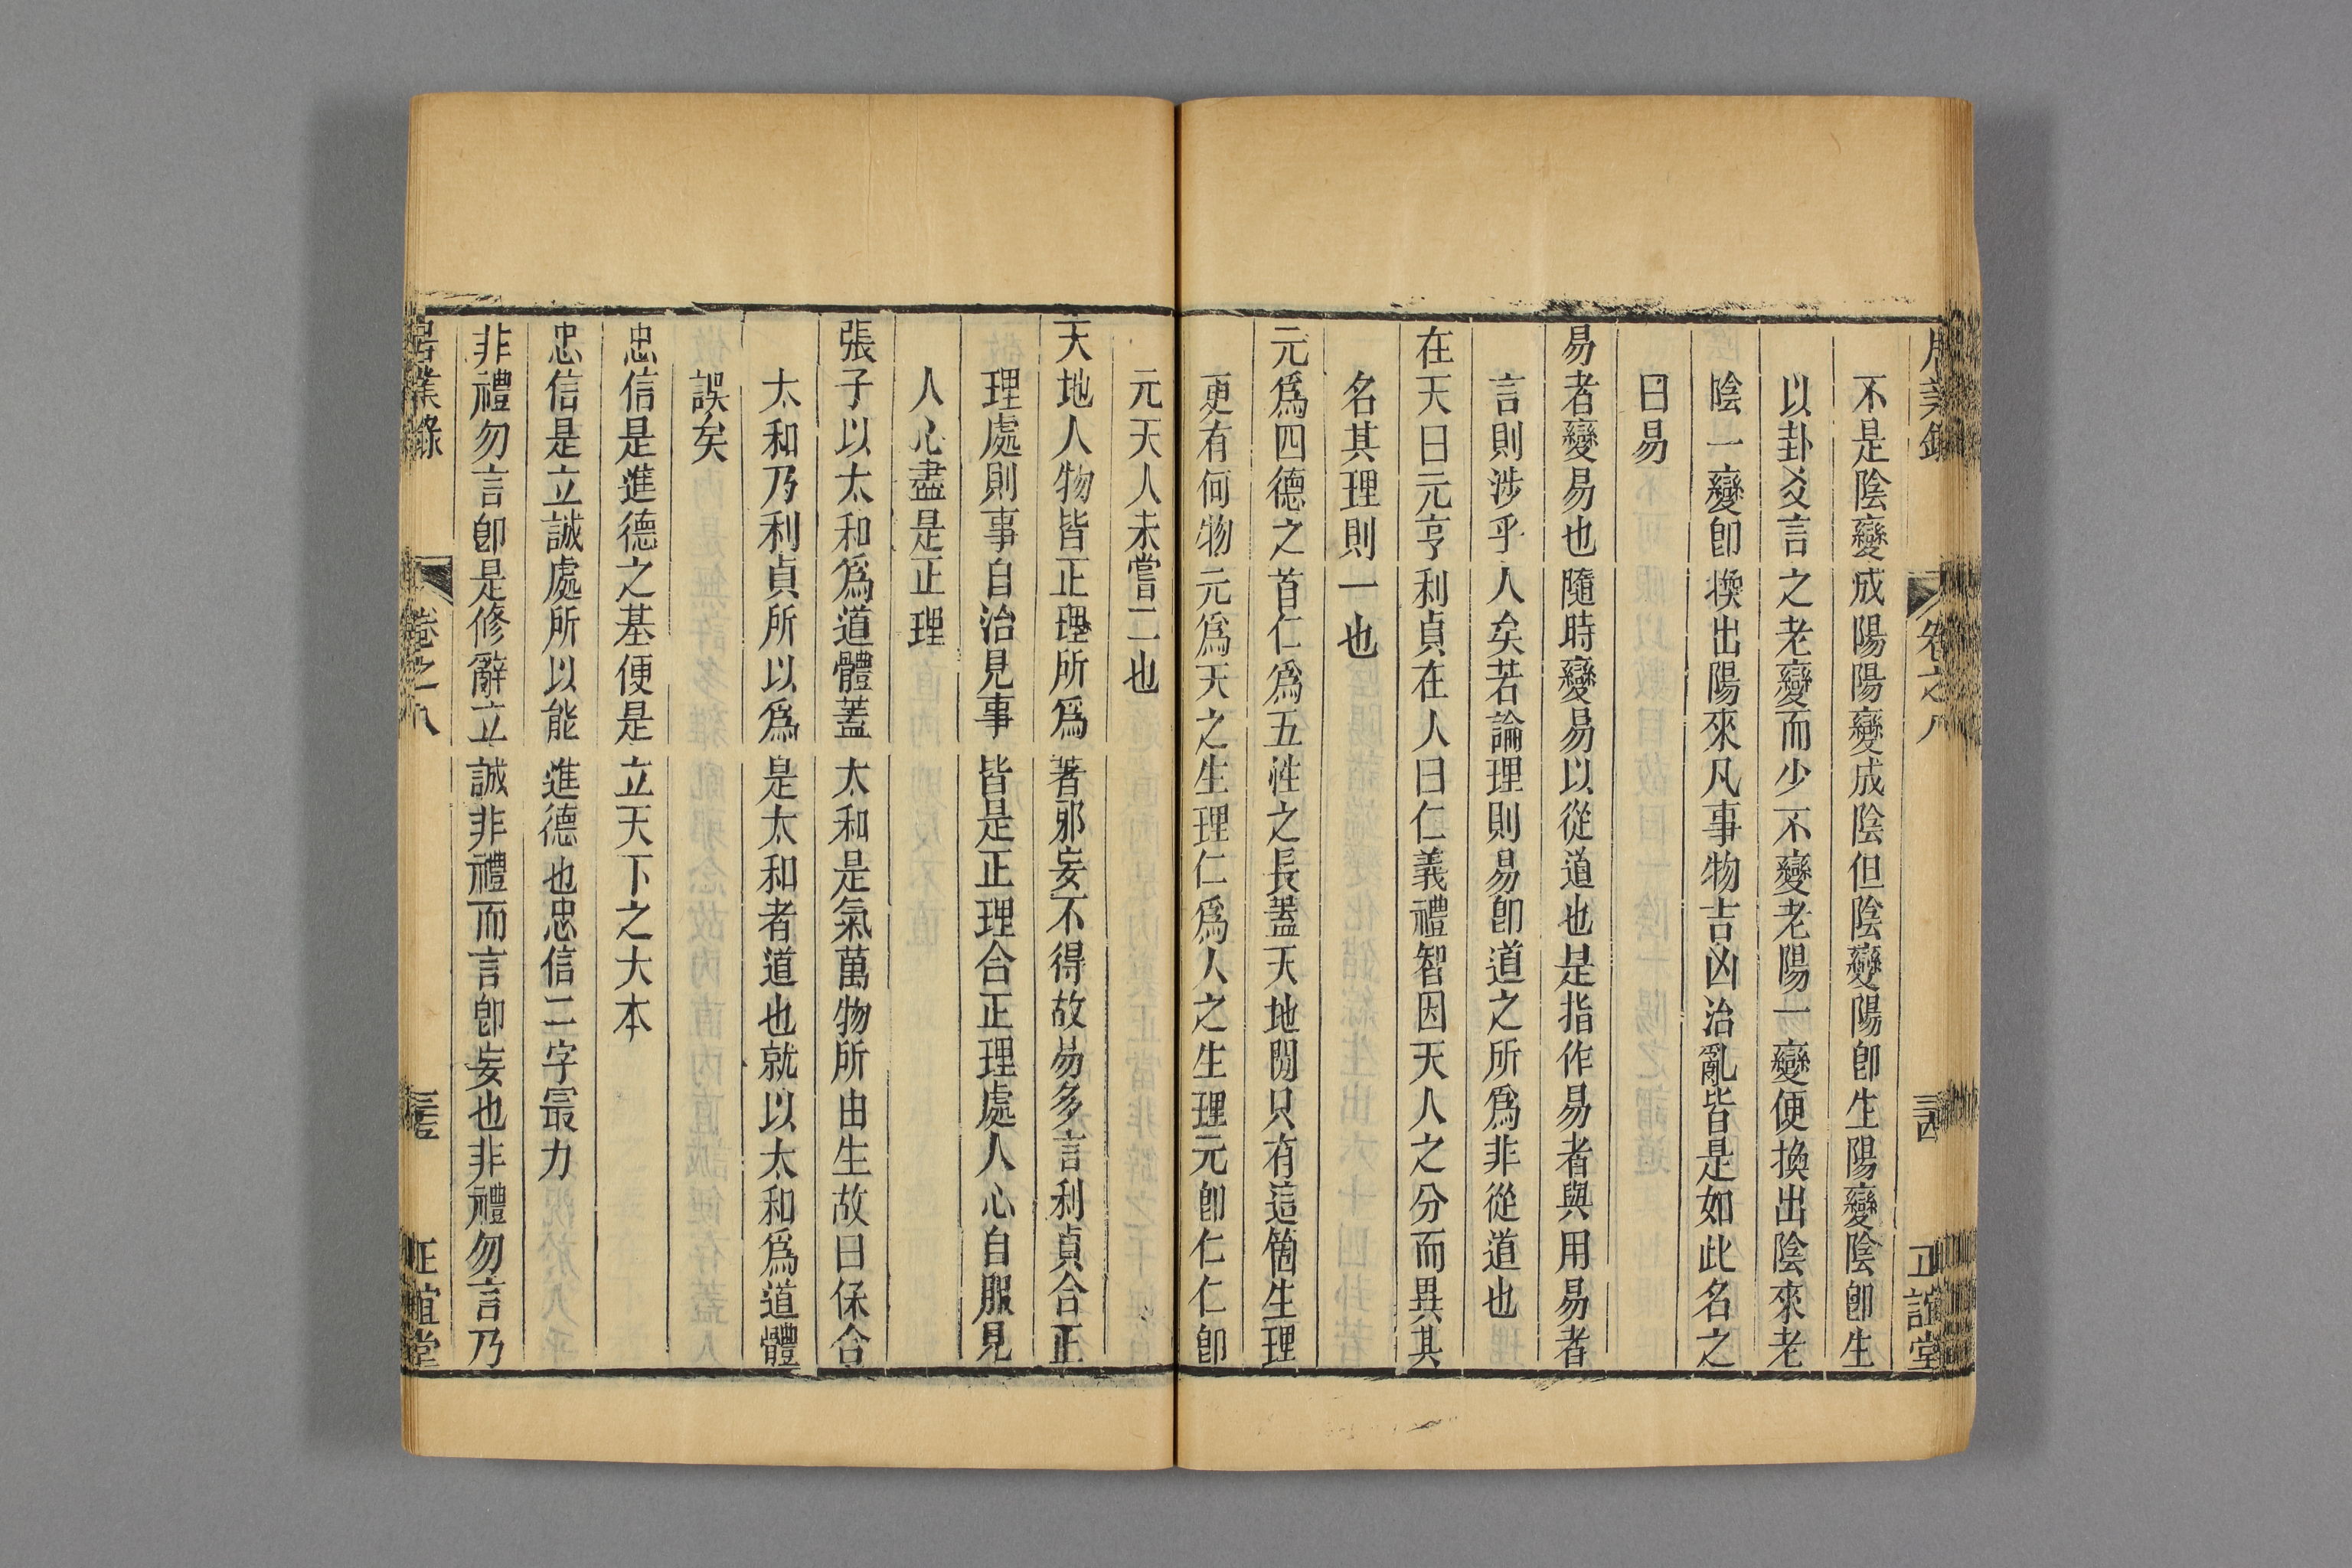 居業錄 卷之八 三四 正誼堂
不是陰變成陽陽變成陰但陰變陽卽生陽變陰卽生
以卦爻言之老變而少不變老陽一變便換出陰來老
陰一變卽換出陽來凡事物吉凶治亂皆是如此名之
曰易
易者變易也隨時變易以從道也是指作易者與用易者
言則涉乎人矣若論理則易卽道之所爲非從道也
在天曰元亨利貞在人曰仁義禮智因天人之分而異其
名其理則一也
元爲四德之首仁爲五性之長蓋天地閒只有這箇生理
更有何物元爲天之生理仁爲人之生理元卽仁仁卽
元天人未嘗二也
天地人物皆正理所爲著邪妄不得故易多言利貞合正
理處則事自治見事皆是正理合正理處人心自服見
人心盡是正理
張子以太和爲道體蓋太和是氣萬物所由生故曰保合
太和乃利貞所以爲是太和者道也就以太和爲道體
誤矣
忠信是進德之基便是立天下之大本
忠信是立誠處所以能進德也忠信二字最力
非禮勿言卽是修辭立誠非禮而言卽妄也非禮勿言乃
居業錄 卷之八 三五 正誼堂